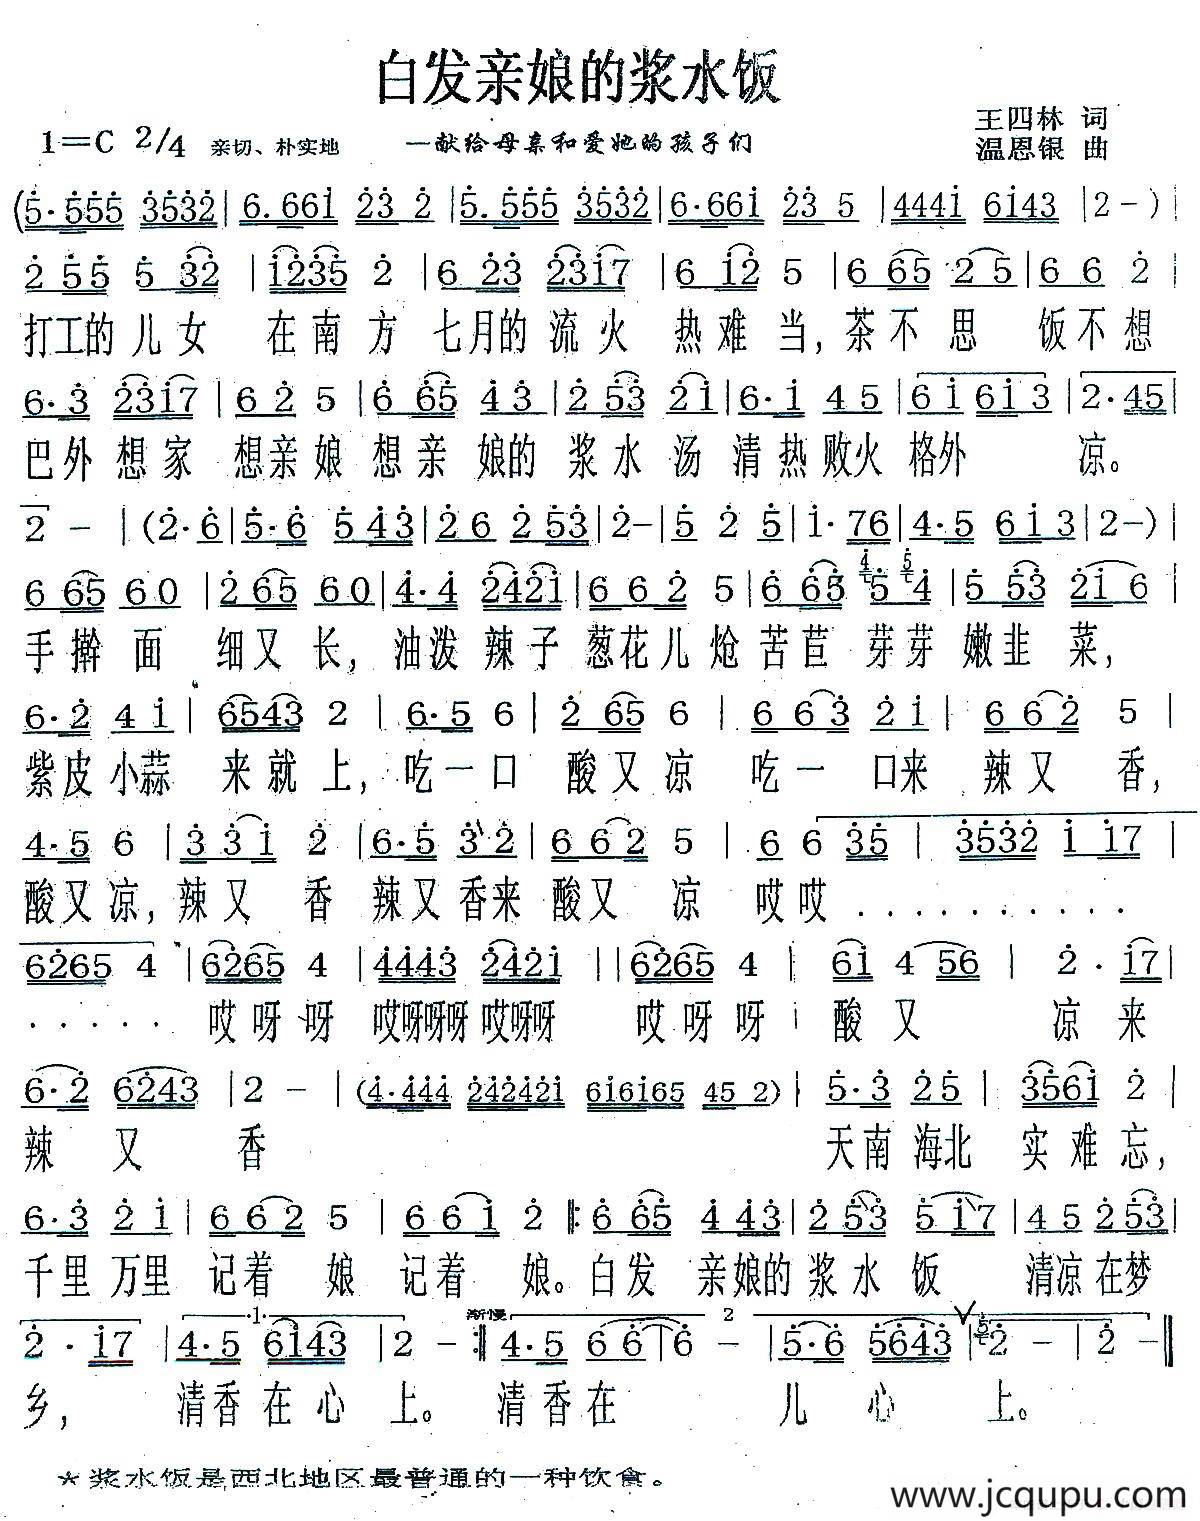 白发亲娘的浆水饭
1=C 2/4 亲切、朴实地 —献给母亲和爱她的孩子们
王四林 词
温恩银 曲
(5·555 3532 | 6.661 23 2 | 5.555 3532 | 6·661 23 5 | 4441 6143 | 2 - ) |
2 55 5 32 | 1235 2 | 6 23 2317 | 6 12 5 | 6 65 2 5 | 6 6 2 |
打工的儿女 在南方 七月的流火 热难当,茶不思 饭不想
6·3 2317 | 6 2 5 | 6 65 4 3 | 2 53 2 1 | 6·1 4 5 | 6 1 61 3 | 2·45 |
巴外想家 想亲娘 想亲娘的浆水汤 清热败火格外 凉。
2 - | (2·6 | 5·6 5 43 | 26 2 53 | 2 - | 5 2 5 | 1·76 | 4·5 61 3 | 2 - ) |
6 65 6 0 | 2 65 6 0 | 4·4 2421 | 6 6 2 5 | 6 65 5 4 | 5 53 21 6 |
手擀面 细又长,油泼辣子葱花儿炝苦苣芽芽嫩韭菜,
6·2 4 1 | 6543 2 | 6·5 6 | 2 65 6 | 6 6 3 2 1 | 6 6 2 5 |
紫皮小蒜 来就上,吃一口 酸又凉 吃一口来 辣又香,
4·5 6 | 3 3 1 2 | 6·5 3 2 | 6 6 2 5 | 6 6 35 | 3532 1 17 |
酸又凉,辣又香 辣又香来 酸又凉 哎哎..........
6265 4 | 6265 4 | 4443 2421 | | 6265 4 | 61 4 56 | 2 · 17 |
..... 哎呀呀 哎呀呀呀 哎呀呀 哎呀呀 酸又 凉来
6·2 6243 | 2 - | (4·444 242421 616165 45 2) | 5·3 2 5 | 3561 2 |
辣又香 天南海北 实难忘,
6·3 2 1 | 6 6 2 5 | 6 6 1 2 |: 6 65 4 43 | 2 53 5 17 | 4 5 2 53 |
千里万里 记着娘 记着娘。白发亲娘的浆水饭 清凉在梦
渐慢
2 · 17 | 1 4·5 6143 | 2 - :| 4·5 6 6 | 6 - 2 | 5·6 5643 | 2 - | 2 - ||
乡, 清香在心上。清香在 儿心上。
*浆水饭是西北地区最普通的一种饮食。
www.jcqupu.com